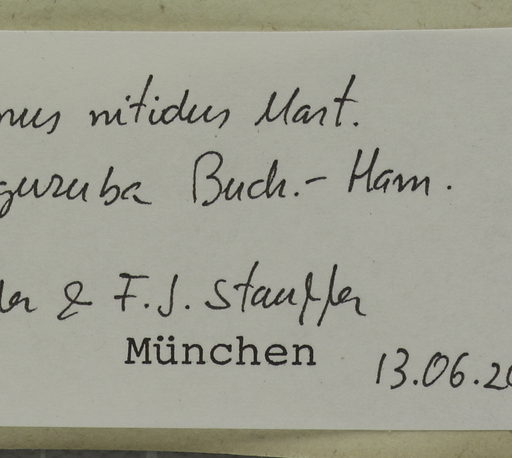 nus nitidus Mart.
guruba Buch.-Ham.
& F. J. Stauffer
München
13.06.20